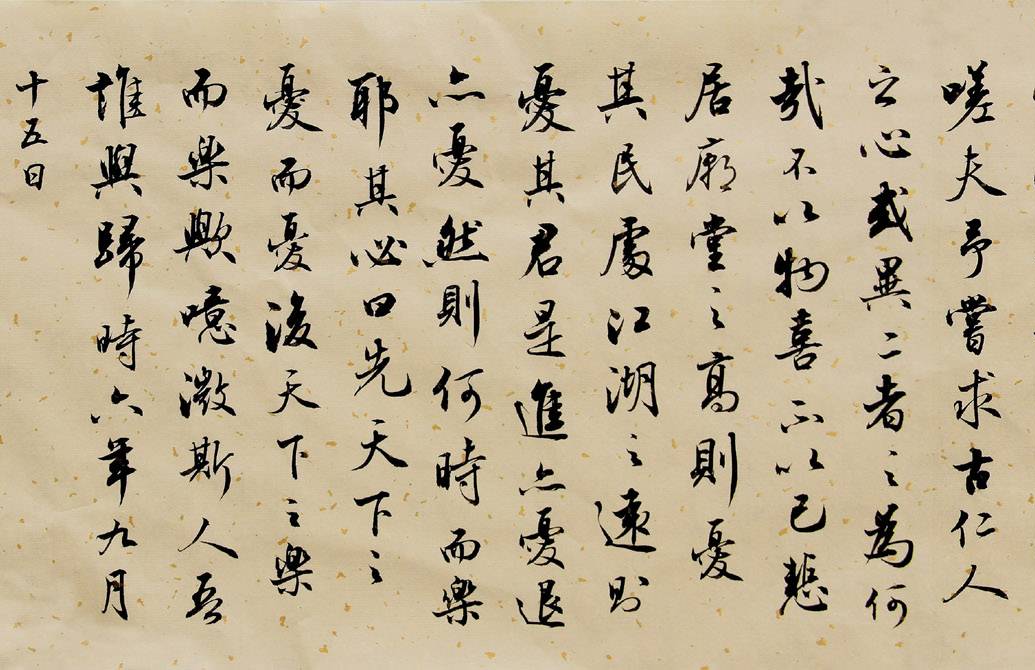 嗟夫予嘗求古仁人
之心或異二者之為何
哉不以物喜不以己悲
居廟堂之高則憂
其民處江湖之遠則
憂其君是進亦憂退
亦憂然則何時而樂
耶其必曰先天下之
憂而憂後天下之樂
而樂歟噫微斯人吾
誰與歸時六年九月
十五日